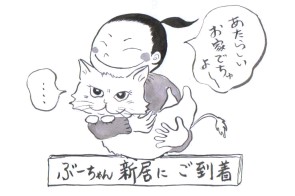 あたらしい
お家でちゅ
よー
・・・・
ぶーちゃん 新居に ご到着